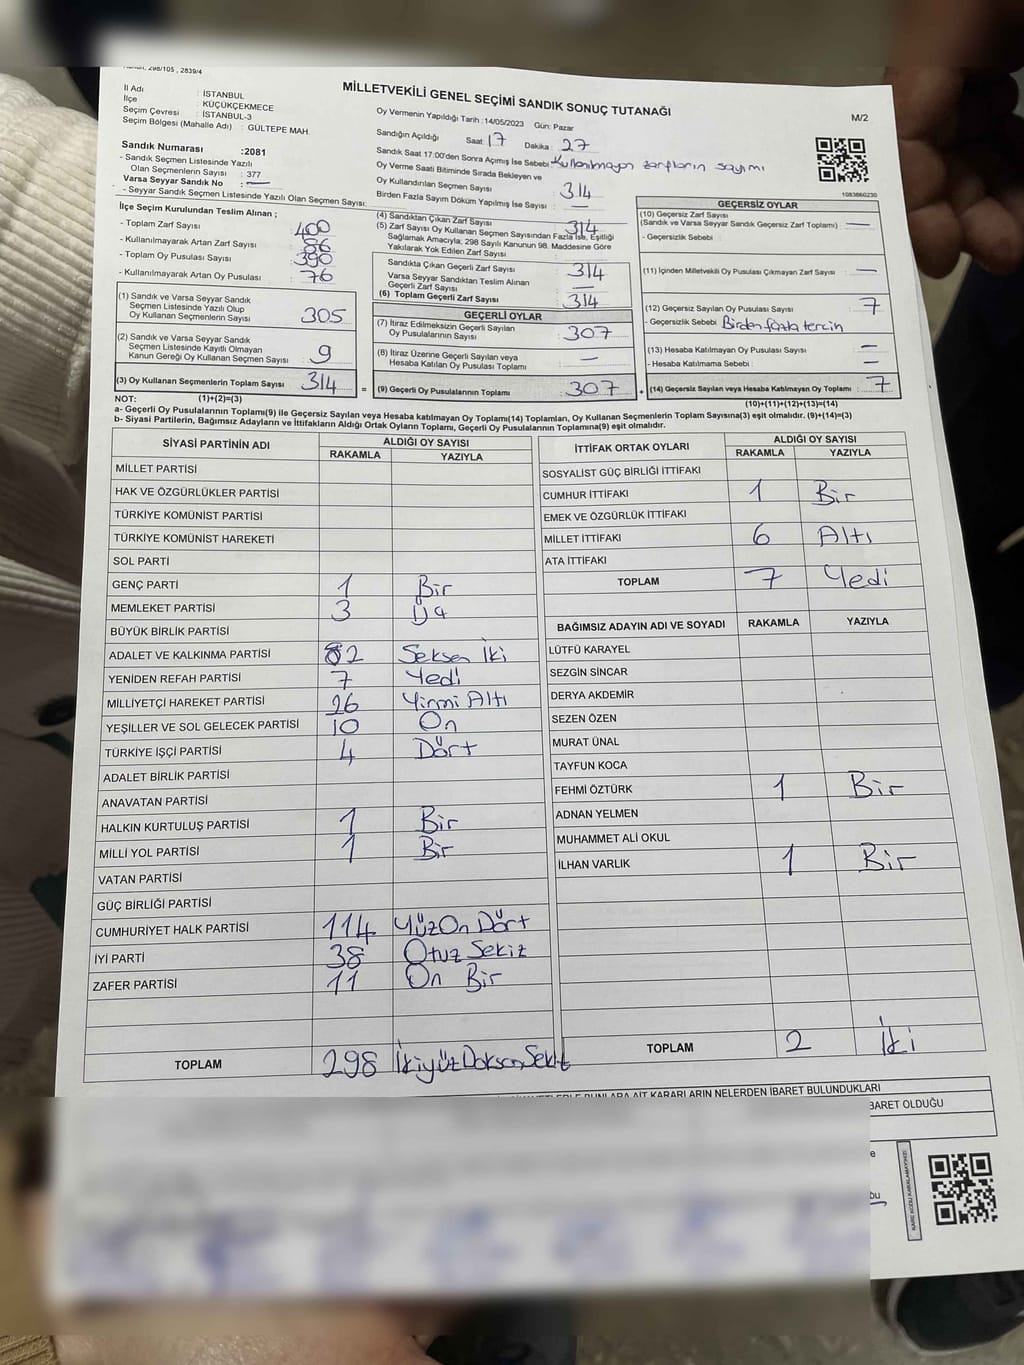 298/105 , 2839/4
MİLLETVEKİLİ GENEL SEÇİMİ SANDIK SONUÇ TUTANAĞI
M/2
İl Adı : İSTANBUL
İlçe : KÜÇÜKÇEKMECE
Seçim Çevresi : İSTANBUL-3
Seçim Bölgesi (Mahalle Adı) : GÜLTEPE MAH.
Oy Vermenin Yapıldığı Tarih :14/05/2023 Gün: Pazar
Sandığın Açıldığı Saat 17 Dakika : 27
Sandık Saat 17.00'den Sonra Açılmış İse Sebebi Kullanılmayan zarfların sayımı
Oy Verme Saati Bitiminde Sırada Bekleyen ve
Oy Kullandırılan Seçmen Sayısı : 314
Birden Fazla Sayım Döküm Yapılmış İse Sayısı : —
Sandık Numarası :2081
- Sandık Seçmen Listesinde Yazılı
Olan Seçmenlerin Sayısı : 377
Varsa Seyyar Sandık No : —
- Seyyar Sandık Seçmen Listesinde Yazılı Olan Seçmen Sayısı:
1083860230
İlçe Seçim Kurulundan Teslim Alınan ;
- Toplam Zarf Sayısı : 400
- Kullanılmayarak Artan Zarf Sayısı : 86
- Toplam Oy Pusulası Sayısı : 390
- Kullanılmayarak Artan Oy Pusulası : 76
(1) Sandık ve Varsa Seyyar Sandık
Seçmen Listesinde Yazılı Olup
Oy Kullanan Seçmenlerin Sayısı : 305
(2) Sandık ve Varsa Seyyar Sandık
Seçmen Listesinde Kayıtlı Olmayan
Kanun Gereği Oy Kullanan Seçmen Sayısı : 9
(3) Oy Kullanan Seçmenlerin Toplam Sayısı : 314
(1)+(2)=(3)
(4) Sandıktan Çıkan Zarf Sayısı : 314
(5) Zarf Sayısı Oy Kullanan Seçmen Sayısından Fazla İse, Eşitliği
Sağlamak Amacıyla, 298 Sayılı Kanunun 98. Maddesine Göre
Yakılarak Yok Edilen Zarf Sayısı :
Sandıkta Çıkan Geçerli Zarf Sayısı : 314
Varsa Seyyar Sandıktan Teslim Alınan
Geçerli Zarf Sayısı : —
(6) Toplam Geçerli Zarf Sayısı : 314
GEÇERLİ OYLAR
(7) İtiraz Edilmeksizin Geçerli Sayılan
Oy Pusulalarının Sayısı : 307
(8) İtiraz Üzerine Geçerli Sayılan veya
Hesaba Katılan Oy Pusulası Toplamı : —
= (9) Geçerli Oy Pusulalarının Toplamı : 307
GEÇERSİZ OYLAR
(10) Geçersiz Zarf Sayısı
(Sandık ve Varsa Seyyar Sandık Geçersiz Zarf Toplamı) : —
- Geçersizlik Sebebi :
(11) İçinden Milletvekili Oy Pusulası Çıkmayan Zarf Sayısı : —
(12) Geçersiz Sayılan Oy Pusulası Sayısı : 7
- Geçersizlik Sebebi : Birden fazla tercih
(13) Hesaba Katılmayan Oy Pusulası Sayısı : —
- Hesaba Katılmama Sebebi : —
+ (14) Geçersiz Sayılan veya Hesaba Katılmayan Oy Toplamı : 7
(10)+(11)+(12)+(13)=(14)
NOT:
a- Geçerli Oy Pusulalarının Toplamı(9) ile Geçersiz Sayılan veya Hesaba katılmayan Oy Toplamı(14) Toplamları, Oy Kullanan Seçmenlerin Toplam Sayısına(3) eşit olmalıdır. (9)+(14)=(3)
b- Siyasi Partilerin, Bağımsız Adayların ve İttifakların Aldığı Ortak Oyların Toplamı, Geçerli Oy Pusulalarının Toplamına(9) eşit olmalıdır.
SİYASİ PARTİNİN ADI ALDIĞI OY SAYISI
RAKAMLA YAZIYLA
MİLLET PARTİSİ
HAK VE ÖZGÜRLÜKLER PARTİSİ
TÜRKİYE KOMÜNİST PARTİSİ
TÜRKİYE KOMÜNİST HAREKETİ
SOL PARTİ
GENÇ PARTİ 1 Bir
MEMLEKET PARTİSİ 3 Üç
BÜYÜK BİRLİK PARTİSİ
ADALET VE KALKINMA PARTİSİ 82 Seksen İki
YENİDEN REFAH PARTİSİ 7 Yedi
MİLLİYETÇİ HAREKET PARTİSİ 26 Yirmi Altı
YEŞİLLER VE SOL GELECEK PARTİSİ 10 On
TÜRKİYE İŞÇİ PARTİSİ 4 Dört
ADALET BİRLİK PARTİSİ
ANAVATAN PARTİSİ
HALKIN KURTULUŞ PARTİSİ 1 Bir
MİLLİ YOL PARTİSİ 1 Bir
VATAN PARTİSİ
GÜÇ BİRLİĞİ PARTİSİ
CUMHURİYET HALK PARTİSİ 114 YüzOn Dört
İYİ PARTİ 38 Otuz Sekiz
ZAFER PARTİSİ 11 On Bir
TOPLAM 298 İkiyüzDoksanSekiz
İTTİFAK ORTAK OYLARI ALDIĞI OY SAYISI
RAKAMLA YAZIYLA
SOSYALİST GÜÇ BİRLİĞİ İTTİFAKI
CUMHUR İTTİFAKI 1 Bir
EMEK VE ÖZGÜRLÜK İTTİFAKI
MİLLET İTTİFAKI 6 Altı
ATA İTTİFAKI
TOPLAM 7 Yedi
BAĞIMSIZ ADAYIN ADI VE SOYADI RAKAMLA YAZIYLA
LÜTFÜ KARAYEL
SEZGİN SİNCAR
DERYA AKDEMİR
SEZEN ÖZEN
MURAT ÜNAL
TAYFUN KOCA
FEHMİ ÖZTÜRK 1 Bir
ADNAN YELMEN
MUHAMMET ALİ OKUL
İLHAN VARLIK 1 Bir
TOPLAM 2 İki
AİT KARARLARIN NELERDEN İBARET BULUNDUKLARI
BARET OLDUĞU